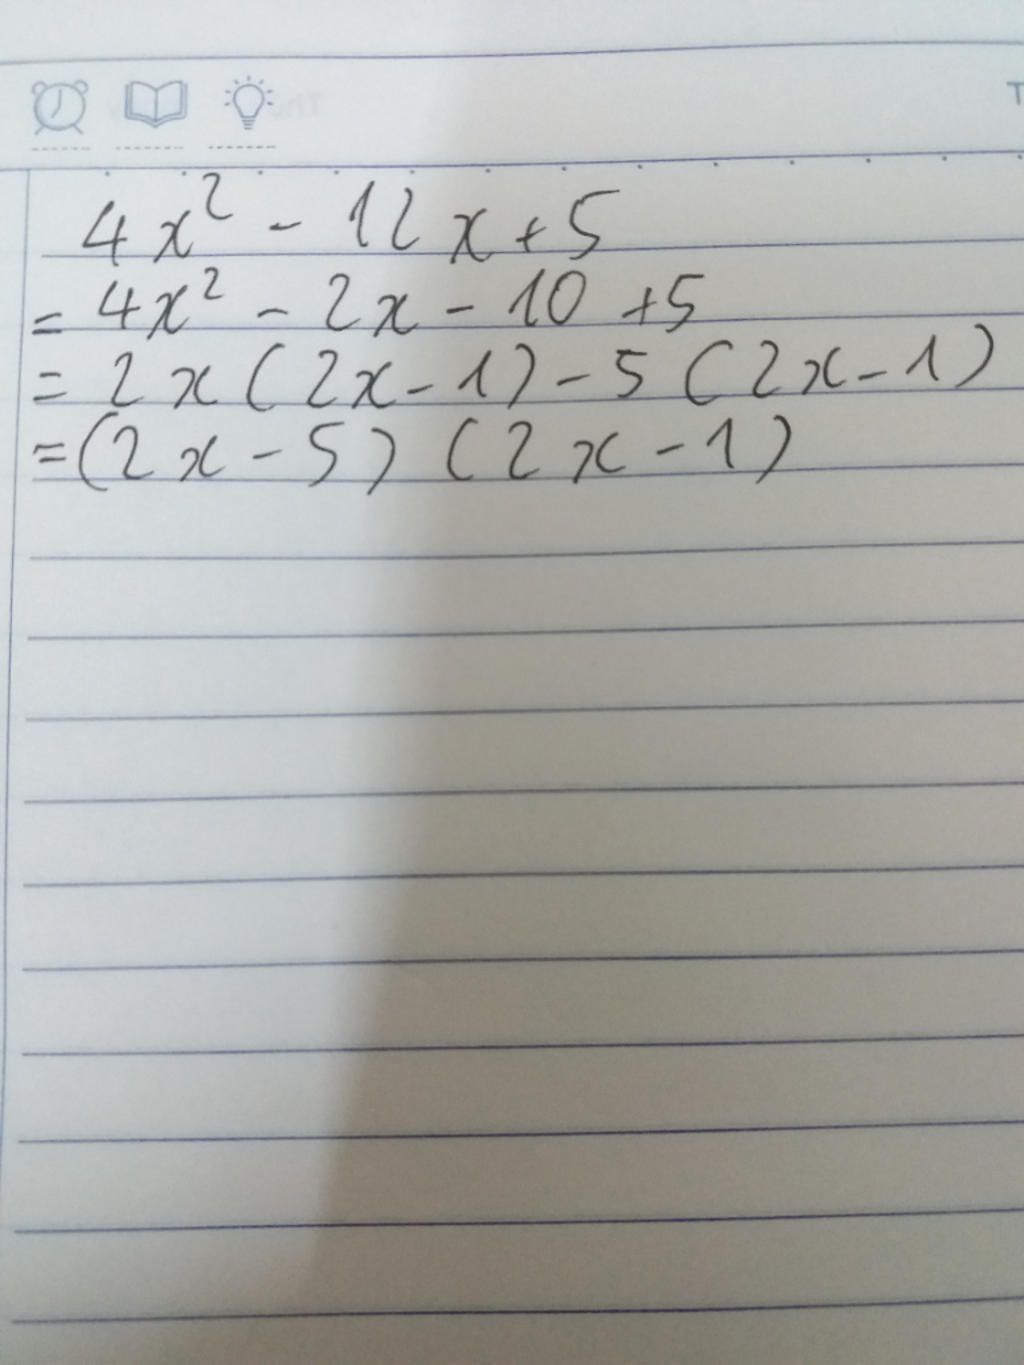 4x² - 12x + 5
= 4x² - 2x - 10 + 5
= 2x (2x - 1) - 5 (2x - 1)
= (2x - 5) (2x - 1)